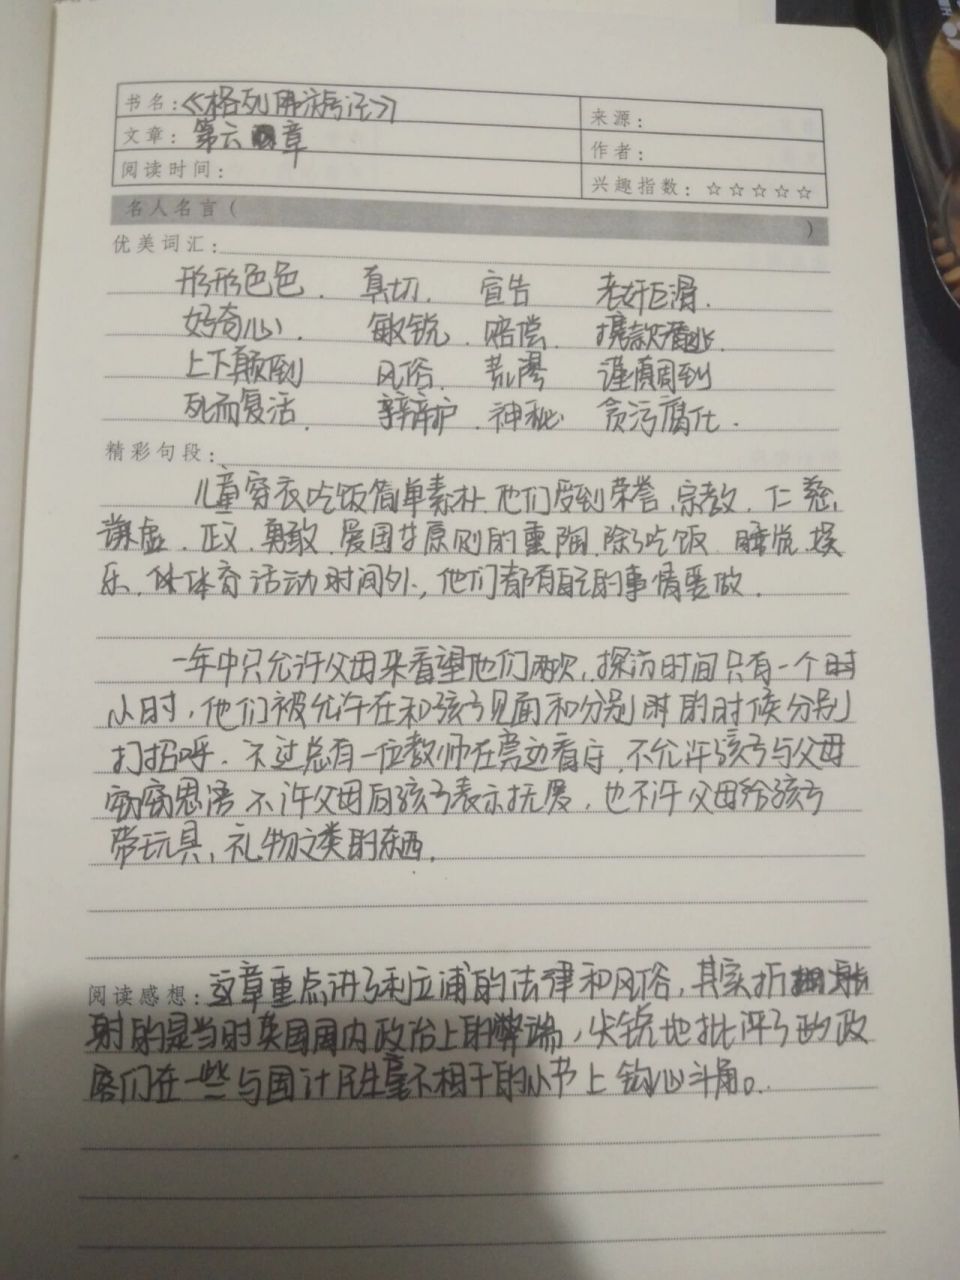 书名：《格列佛游记》 来源：
文章：第六章 作者：
阅读时间： 兴趣指数：☆☆☆☆☆
名人名言（ ）
优美词汇：
形形色色. 真切. 宣告 老奸巨滑.
好奇心. 敏锐. 赔偿. 携款潜逃.
上下颠倒 风俗. 荒谬 谨慎周到
死而复活. 辩护. 神秘. 贪污腐化.
精彩句段：
儿童穿衣吃饭简单素朴.他们受到荣誉.宗教.仁慈.
谦虚.正义.勇敢.爱国等原则的熏陶.除了吃饭.睡觉.娱
乐.体育活动时间外,他们都有自己的事情要做.
一年中只允许父母来看望他们两次,探访时间只有一个
小时,他们被允许在和孩子见面和分别时的时候分别
打招呼.不过总有一位教师在旁边看守,不允许孩子与父母
窃窃恩语不许父母向孩子表示抚爱,也不许父母给孩子
带玩具,礼物之类的东西.
阅读感想：这章重点讲了利立浦的法律和风俗,其实折
射的是当时英国国内政治上的弊端,尖锐地批评了的政
客们在一些与国计民生毫不相干的小节上钩心斗角。